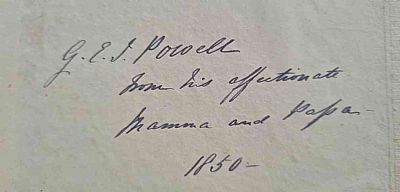 G. E. J. Powell
from his affectionate
Mamma and Papa -
1850 -